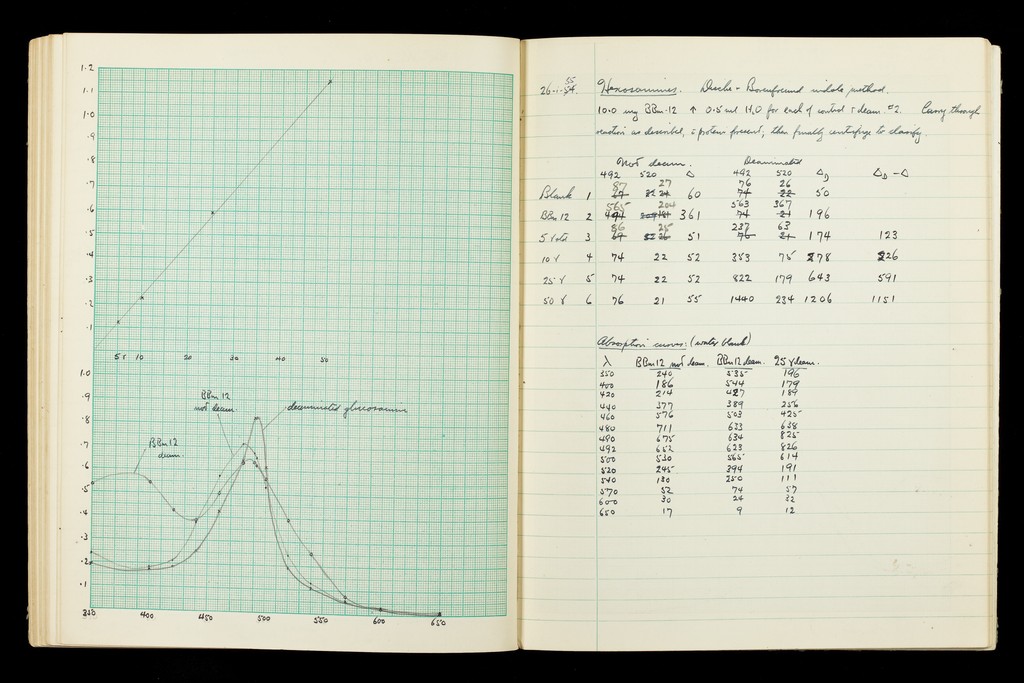 1.2
1.1
1.0
.9
.8
.7
.6
.5
.4
.3
.2
.1
5γ 10 20 30 40 50
1.0
.9
.8
.7
.6
.5
.4
.3
.2
.1
BBm 12
not deam.
deaminated glucosamine
BBm 12
deam.
350 400 450 500 550 600 650
55
26
Hexosamines. Dische - Borenfreund indole method.
10.0 mg BBm-12 ↑ 0.5 ml H2O for each of control + deam. #2. Carry through
reaction as described, c̄ protein present, then finally centrifuge to clarify.
Not deam. Deaminated
492 520 Δ 492 520 ΔD ΔD - Δ
87 27 76 26
Blank 1 60 50
565 204 563 367
BBm 12 2 361 196
86 25 237 63
5 γ 3 51 174 123
10 γ 4 74 22 52 353 75 278 226
25 γ 5 74 22 52 822 179 643 591
50 γ 6 76 21 55 1440 234 1206 1151
Absorption curves: (water blank)
λ BBm 12 not deam. BBm 12 deam. 25 γ deam.
350 240 535 196
400 186 544 179
420 214 427 189
440 377 389 256
460 576 503 425
480 711 633 638
490 675 634 825
492 652 623 826
500 530 565 614
520 245 394 191
540 130 250 111
570 52 74 57
600 30 24 32
650 17 9 12